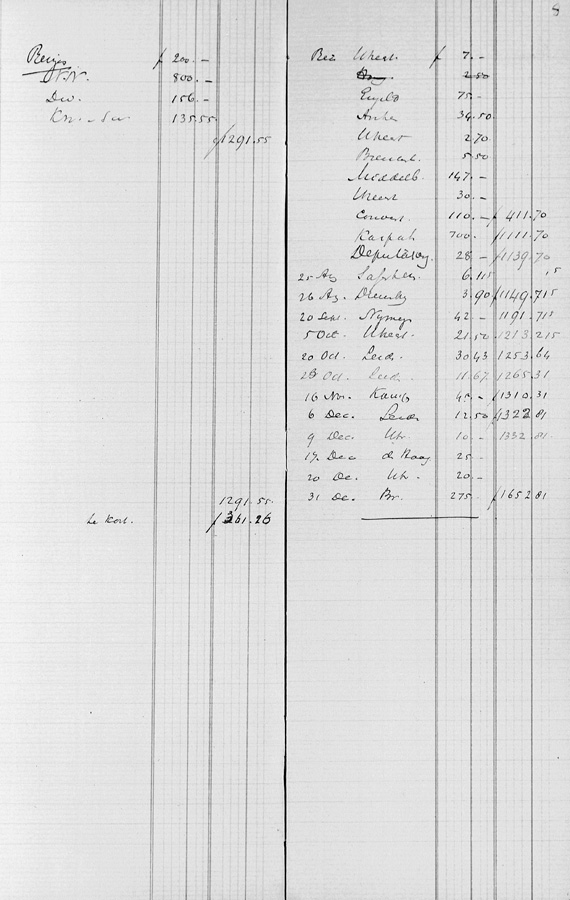 8
Reizen f 200.–
N.N. 800.–
Div. 156.–
135.55
f 1291.55
1291.55
te kort. f 361.26
Reiz Utrecht f 7.–
2.50
75.–
Arnhem 34.50
Utrecht 2.70
5.50
Middelb. 147.–
Utrecht 30.–
Convent. 110.– f 411.70
700.– f 1111.70
Deputaten 28.– f 1139.70
25 Aug. 6.115
26 Aug. 3.90 f 1149.715
20 Sept. Nijmeg 42.– 1191.715
5 Oct. Utrecht 21.50 1213.215
20 Oct. Leid. 30.43 1253.64
28 Oct. Leid. 11.67 1265.31
16 Nov. Kamp 45.– f 1310.31
6 Dec. Leid 12.50 f 1322.81
9 Dec. Utr. 10.– 1332.81
17 Dec de Haag 25.–
20 De. Utr. 20.–
31 De. Br. 275.– f 1652.81